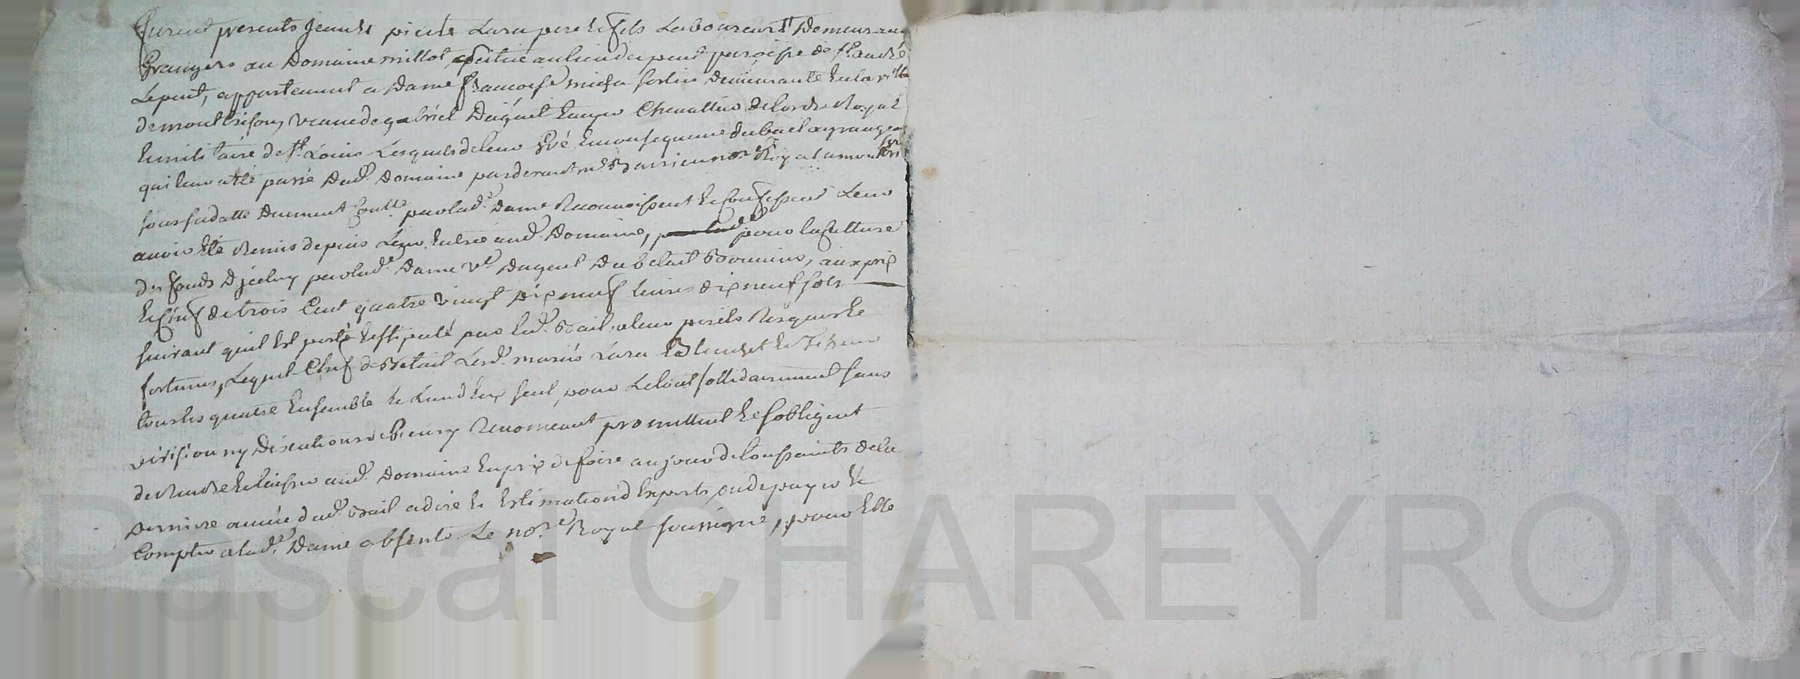 furent presents Jean & pierre Lara pere & fils Laboureurs Demeurants
Grangers au Domaine millot, scitué au lieu du puent paroisse de St. André
Le puent, appartenant a Dame francoise Demeurante en la ville
de montbrison, veuve de gabriel Chevallier de L'ordre Royal
& militaire de St. Louis Lesquels de leur gré en consequence du bail a grangeage
qui leur a été passé Dud. Domaine pardevant me. Barrieu nore. Royal a montbrison
sous sa datte Duement Conllé. par lad. Dame Reconnoissent & Confessent Leur
avoir été Remis depuis Leur Entrée aud. Domaine, pour la Culture
des fonds D'jceluy par lad. Dame ve. Du betail Bovin, aux prix
& Chef de trois Cent quatre vingt Dix neuf livres dix neuf sols
suivant quil Est porté & stipulé par led. Bail, a leur perils Risques &
fortunes, Lequel Chef de Betail Lesd. mariés Lara
tous les quatre Ensemble & L'un d'eux seul, pour Le tout sollidairement sans
Division ny Discution a quoy Renoncent promettent & s'obligent
de Rendre & laisser aud. Domaine En prix de foire au jour de la toussaints de la
Derniere année dud. Bail a dire & Estimation d'Experts, ou de payer &
Compter a lad. Dame absente Le nore. Royal soussigné, pour Elle
Pascal CHAREYRON